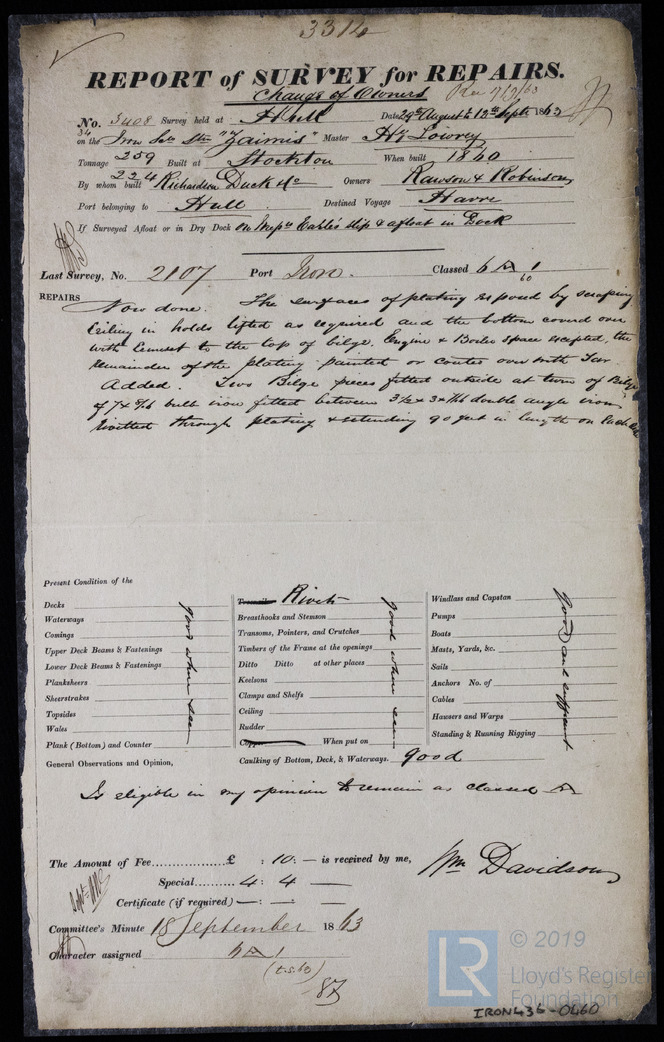 3314
REPORT of SURVEY for REPAIRS.
Change of Owners
No. 3408 Survey held at Hull Date 29th August to 12th Septr 1863
on the Iron Scr Str "Zaimis" Master Hy Lowrey
Tonnage 259 Built at Stockton When built 1860
224
By whom built Richardson Duck & Co Owners Rawson & Robinson
Port belonging to Hull Destined Voyage Havre
If Surveyed Afloat or in Dry Dock On Messrs slip & afloat in Dock
Last Survey, No. 2107 Port Iron. Classed 6 A 1
60
REPAIRS
Now done. The surfaces of plating exposed by scraping
Ceiling in holds lifted as required and the bottom coverd over
with Cement to the top of bilge, Engine & Boiler space excepted, the
remainder of the plating painted or coated over with Tar
Added. Two Bilge pieces fitted outside at turn of Bilge
of 7 x 9/16 bulb iron fitted between 3½ x 3 x double angle iron
rivitted through plating & extending 90 feet in length on Each side
Present Condition of the
Decks
Waterways
Comings
Upper Deck Beams & Fastenings
Lower Deck Beams & Fastenings
Planksheers
Sheerstrakes
Topsides
Wales
Plank (Bottom) and Counter
good where seen
Treenails Rivets
Breasthooks and Stemson
Transoms, Pointers, and Crutches
Timbers of the Frame at the openings
Ditto Ditto at other places
Keelsons
Clamps and Shelfs
Ceiling
Rudder
Copper When put on
Caulking of Bottom, Deck, & Waterways. good
good where seen
Windlass and Capstan
Pumps
Boats
Masts, Yards, &c.
Sails
Anchors No. of
Cables
Hawsers and Warps
Standing & Running Rigging
good and sufficient
General Observations and Opinion,
Is eligible in my opinion to remain as classed A
The Amount of Fee............ £ : 10 : — is received by me,
Wm Davidson
Special......... 4 : 4 —
Certificate (if required) — : —
Committee's Minute 18 September 1863
Character assigned 6 A 1
(t.s. 60)
LR
© 2019
Lloyd's Register
Foundation
IRON436-0460